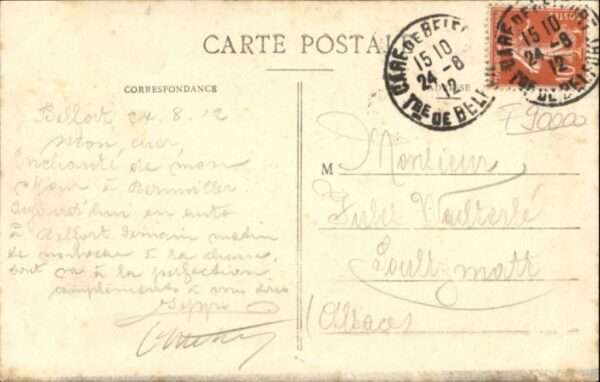 CARTE POSTAL
CORRESPONDANCE
Belfort 24.8.12
Mon cher,
Enchanté de mon
séjour à
Aujourd'hui en auto
à Belfort demain matin
de à la chasse,
tout va à la perfection
compléments à vous dire
GARE DE BELFORT
15 10
24-8
12
TRE DE BELFORT
GARE DE BELFORT
15 10
24-8
12
TRE DE BELFORT
F 90000
M Monsieur
Jules
Soultzmatt
(Alsace)